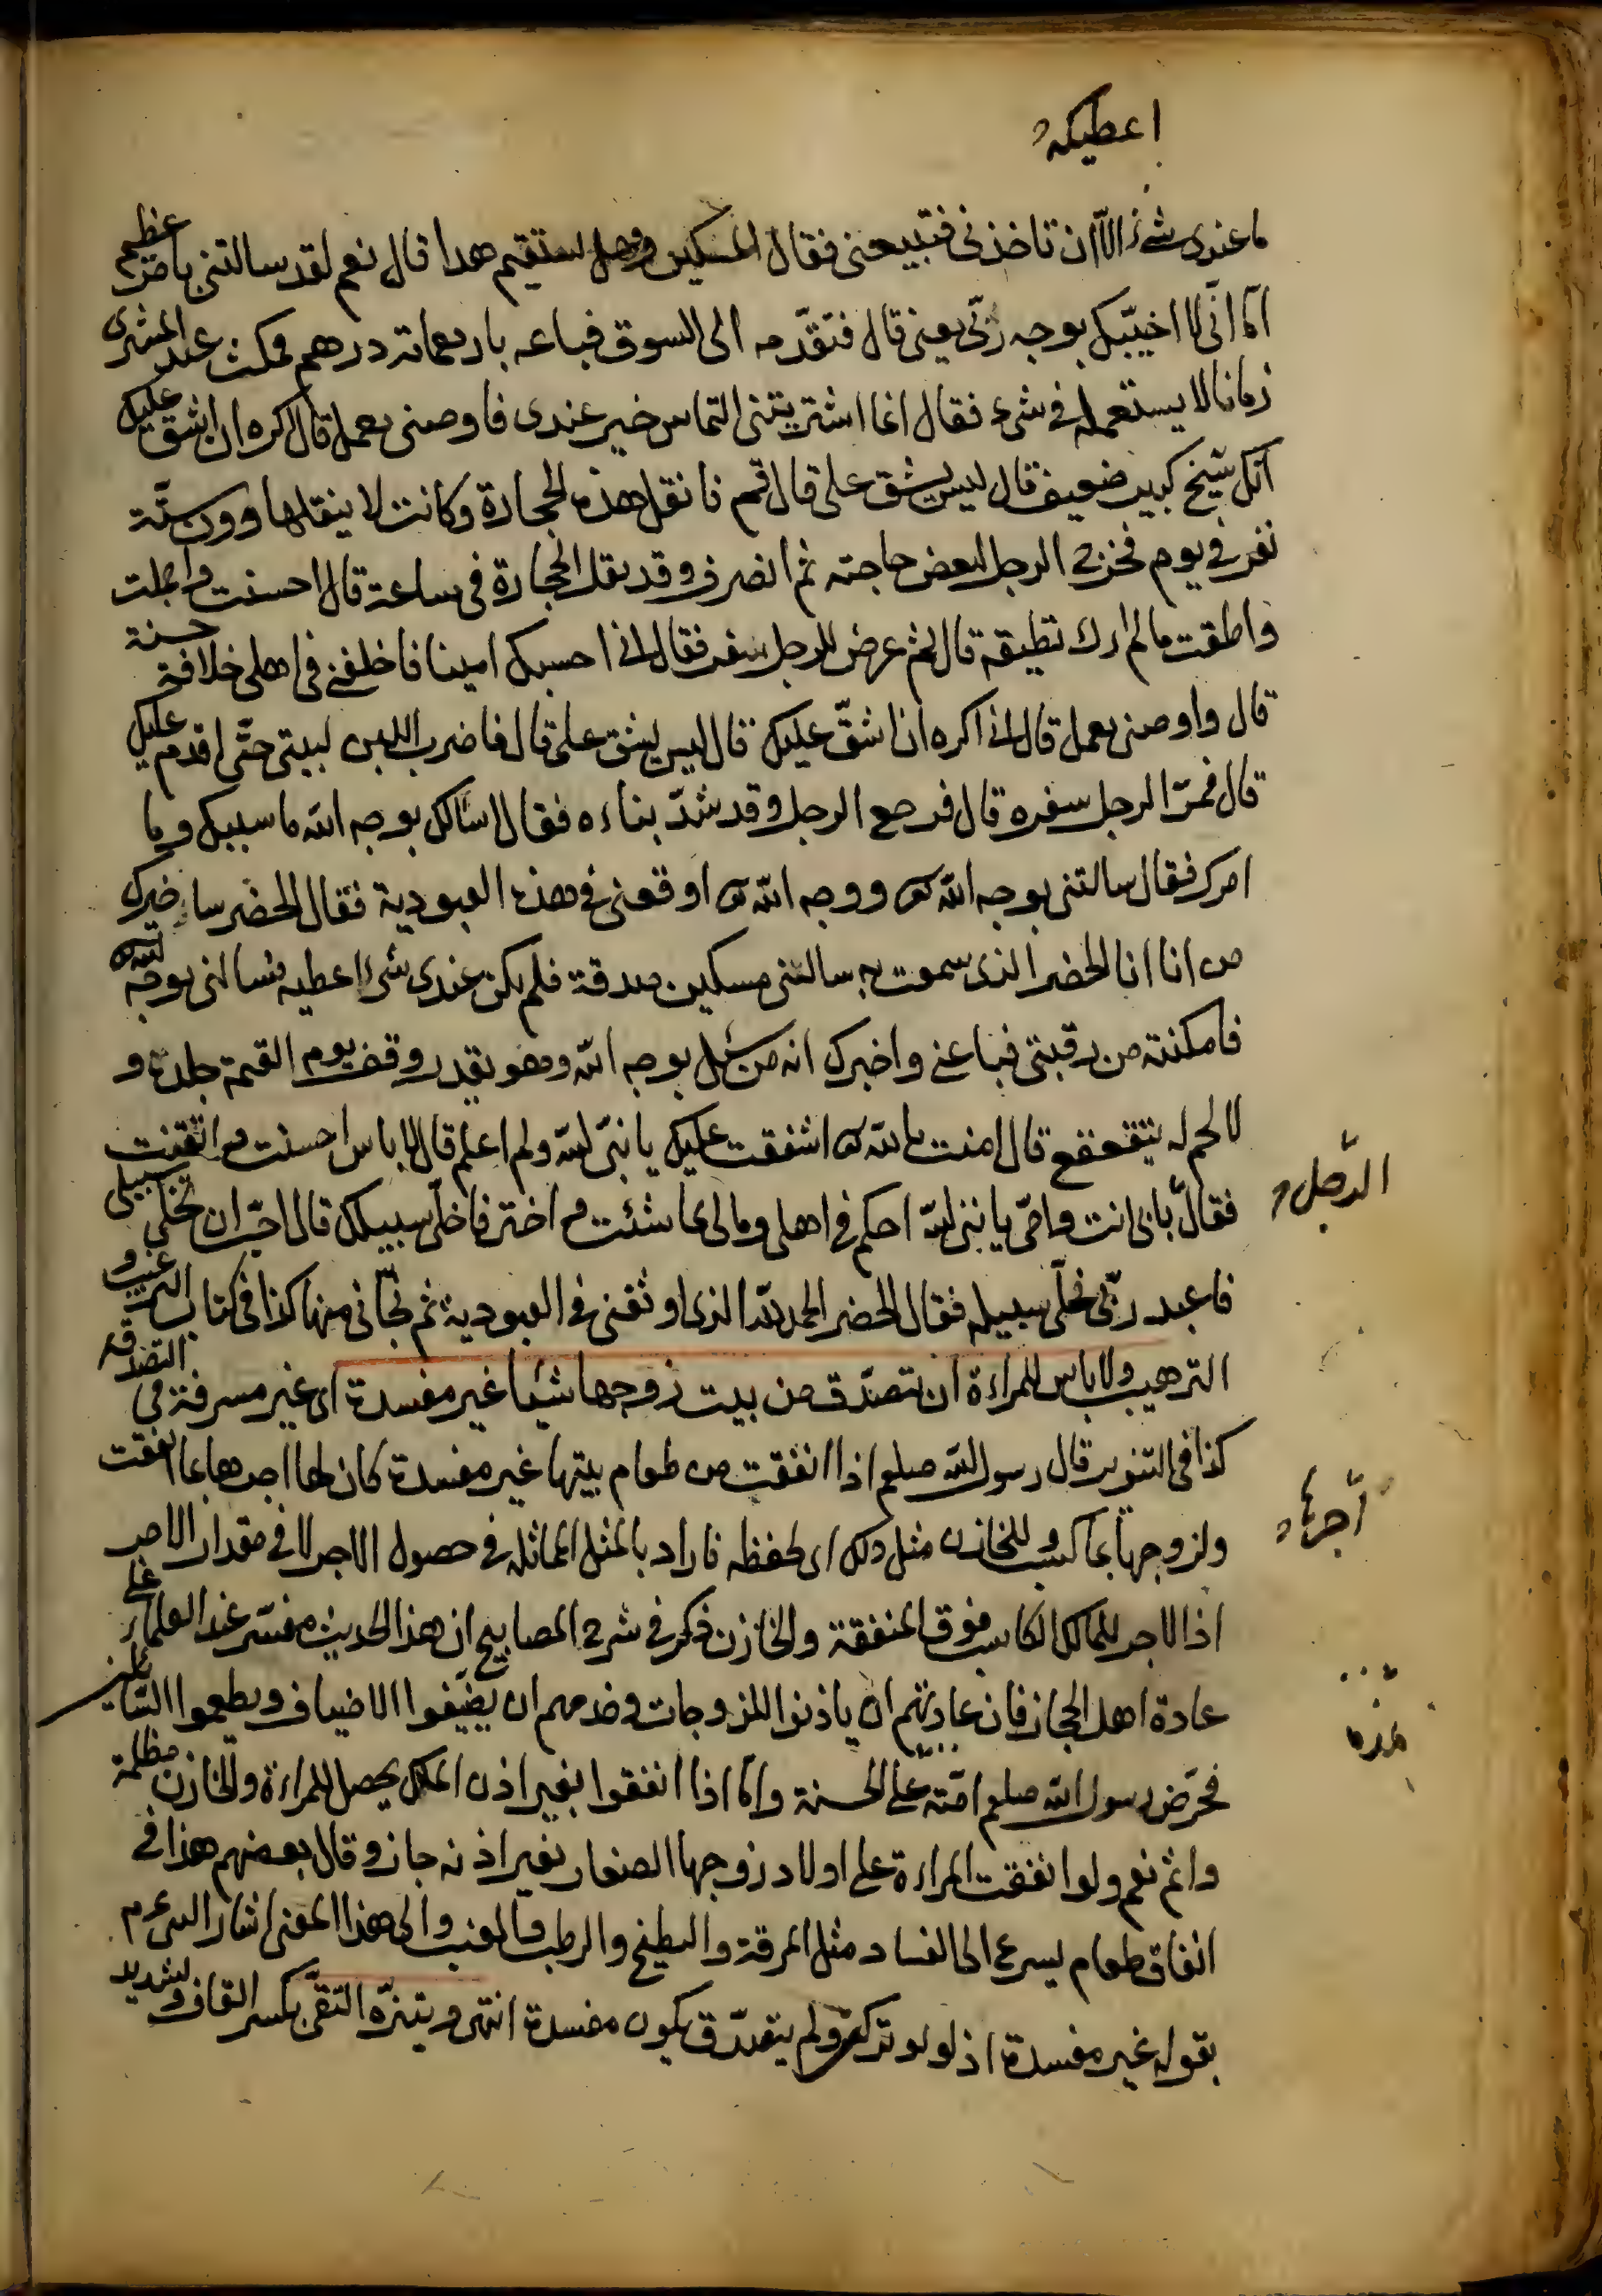 اعطيكه
ما عندى شئ الا ان تاخذنى فتبيعنى فقال المسكين وهل يستقيم هذا قال نعم لقد سالتنى بامر عظيم
اما انى لا اخيبك بوجه ربى بعنى قال فتقدمه الى السوق فباعه باربعمائة درهم فمكث عند المشترى
زمانا لا يستعمله فى شئ فقال انما اشتريتنى التماس خير عندى فاوصنى بعمل قال اكره ان اشق عليك
انك شيخ كبير ضعيف قال ليس يشق على قال قم فانقل هذه الحجارة وكانت لا ينقلها دون ستة
نفر فى يوم فخرج الرجل لبعض حاجته ثم انصرف وقد نقل الحجارة فى ساعة قال احسنت واجملت
واطقت ما لم ارك تطيقه قال ثم عرض للرجل سفر فقال انى احسبك امينا فاخلفنى فى اهلى خلافة حسنة
قال واوصنى بعمل قال انى اكره ان اشق عليك قال ليس يشق على قال فاضرب اللبن لبيتى حتى اقدم عليك
قال فمر الرجل سفره قال فرجع الرجل وقد شد بناءه فقال اسالك بوجه الله ما سبيلك وما
امرك فقال سالتنى بوجه الله ووجه الله اوقعنى فى هذه العبودية فقال الخضر ساخبرك
من انا انا الخضر الذى سمعت به سالتنى مسكين صدقة فلم يكن عندى شئ اعطيه فسالنى بوجه الله
فامكنته من رقبتى فباعنى واخبرك انه من سئل بوجه الله وهو يقدر وقف يوم القيمة جلده و
لا لحم له يتقعقع قال امنت بالله اشفقت عليك يا نبى الله ولم اعلم قال لا باس احسنت واتقنت
فقال الرجل بابى انت وامى يا نبى الله احكم فى اهلى ومالى بما شئت واختر فاخلى سبيلك قال احب ان تخلى سبيلى
فاعبد ربى فخلى سبيله فقال الخضر الحمد لله الذى اوثقنى فى العبودية ثم نجانى منها كذا فى كتاب الترغيب و
الترهيب ولا باس للمراءة ان تتصدق من بيت زوجها شيئا غير مفسدة اى غير مسرفة فى التصدقة
كذا فى التنوير قال رسول الله صلعم اذا انفقت من طعام بيتها غير مفسدة كان لها اجرها بما انفقت
ولزوجها اجره بما كسب وللخازن مثل ذلك اى لحفظه فاراد بالمثل المماثلة فى حصول الاجر لا فى مقدار الاجر
اذ الاجر للمالك الكاسب فوق المنفقة والخازن ذكر فى شرح المصابيح ان هذا الحديث مفسر عند العلماء على
عادة اهل الحجاز فان عادتهم ان ياذنوا للزوجات وخدمهم ان يضيفوا الاضياف ويطعموا السائلين
فحرض رسول الله صلعم امته على الحسنة واما اذا انفقوا بغير اذن المالك يحصل للمراءة والخازن مظلمة
واثم نعم ولو انفقت المراءة على اولاد زوجها الصغار بغير اذنه جاز وقال بعضهم هذا فى
انفاق طعام يسرع الى الفساد مثل المرقة والبطيخ والرطب والعنب والى هذا المعنى اشار النبى عم
بقوله غير مفسدة اذ لو تركته ولم يتصدق يكون مفسدة انتهى ويتنزه التقى بكسر القاف وتشديد